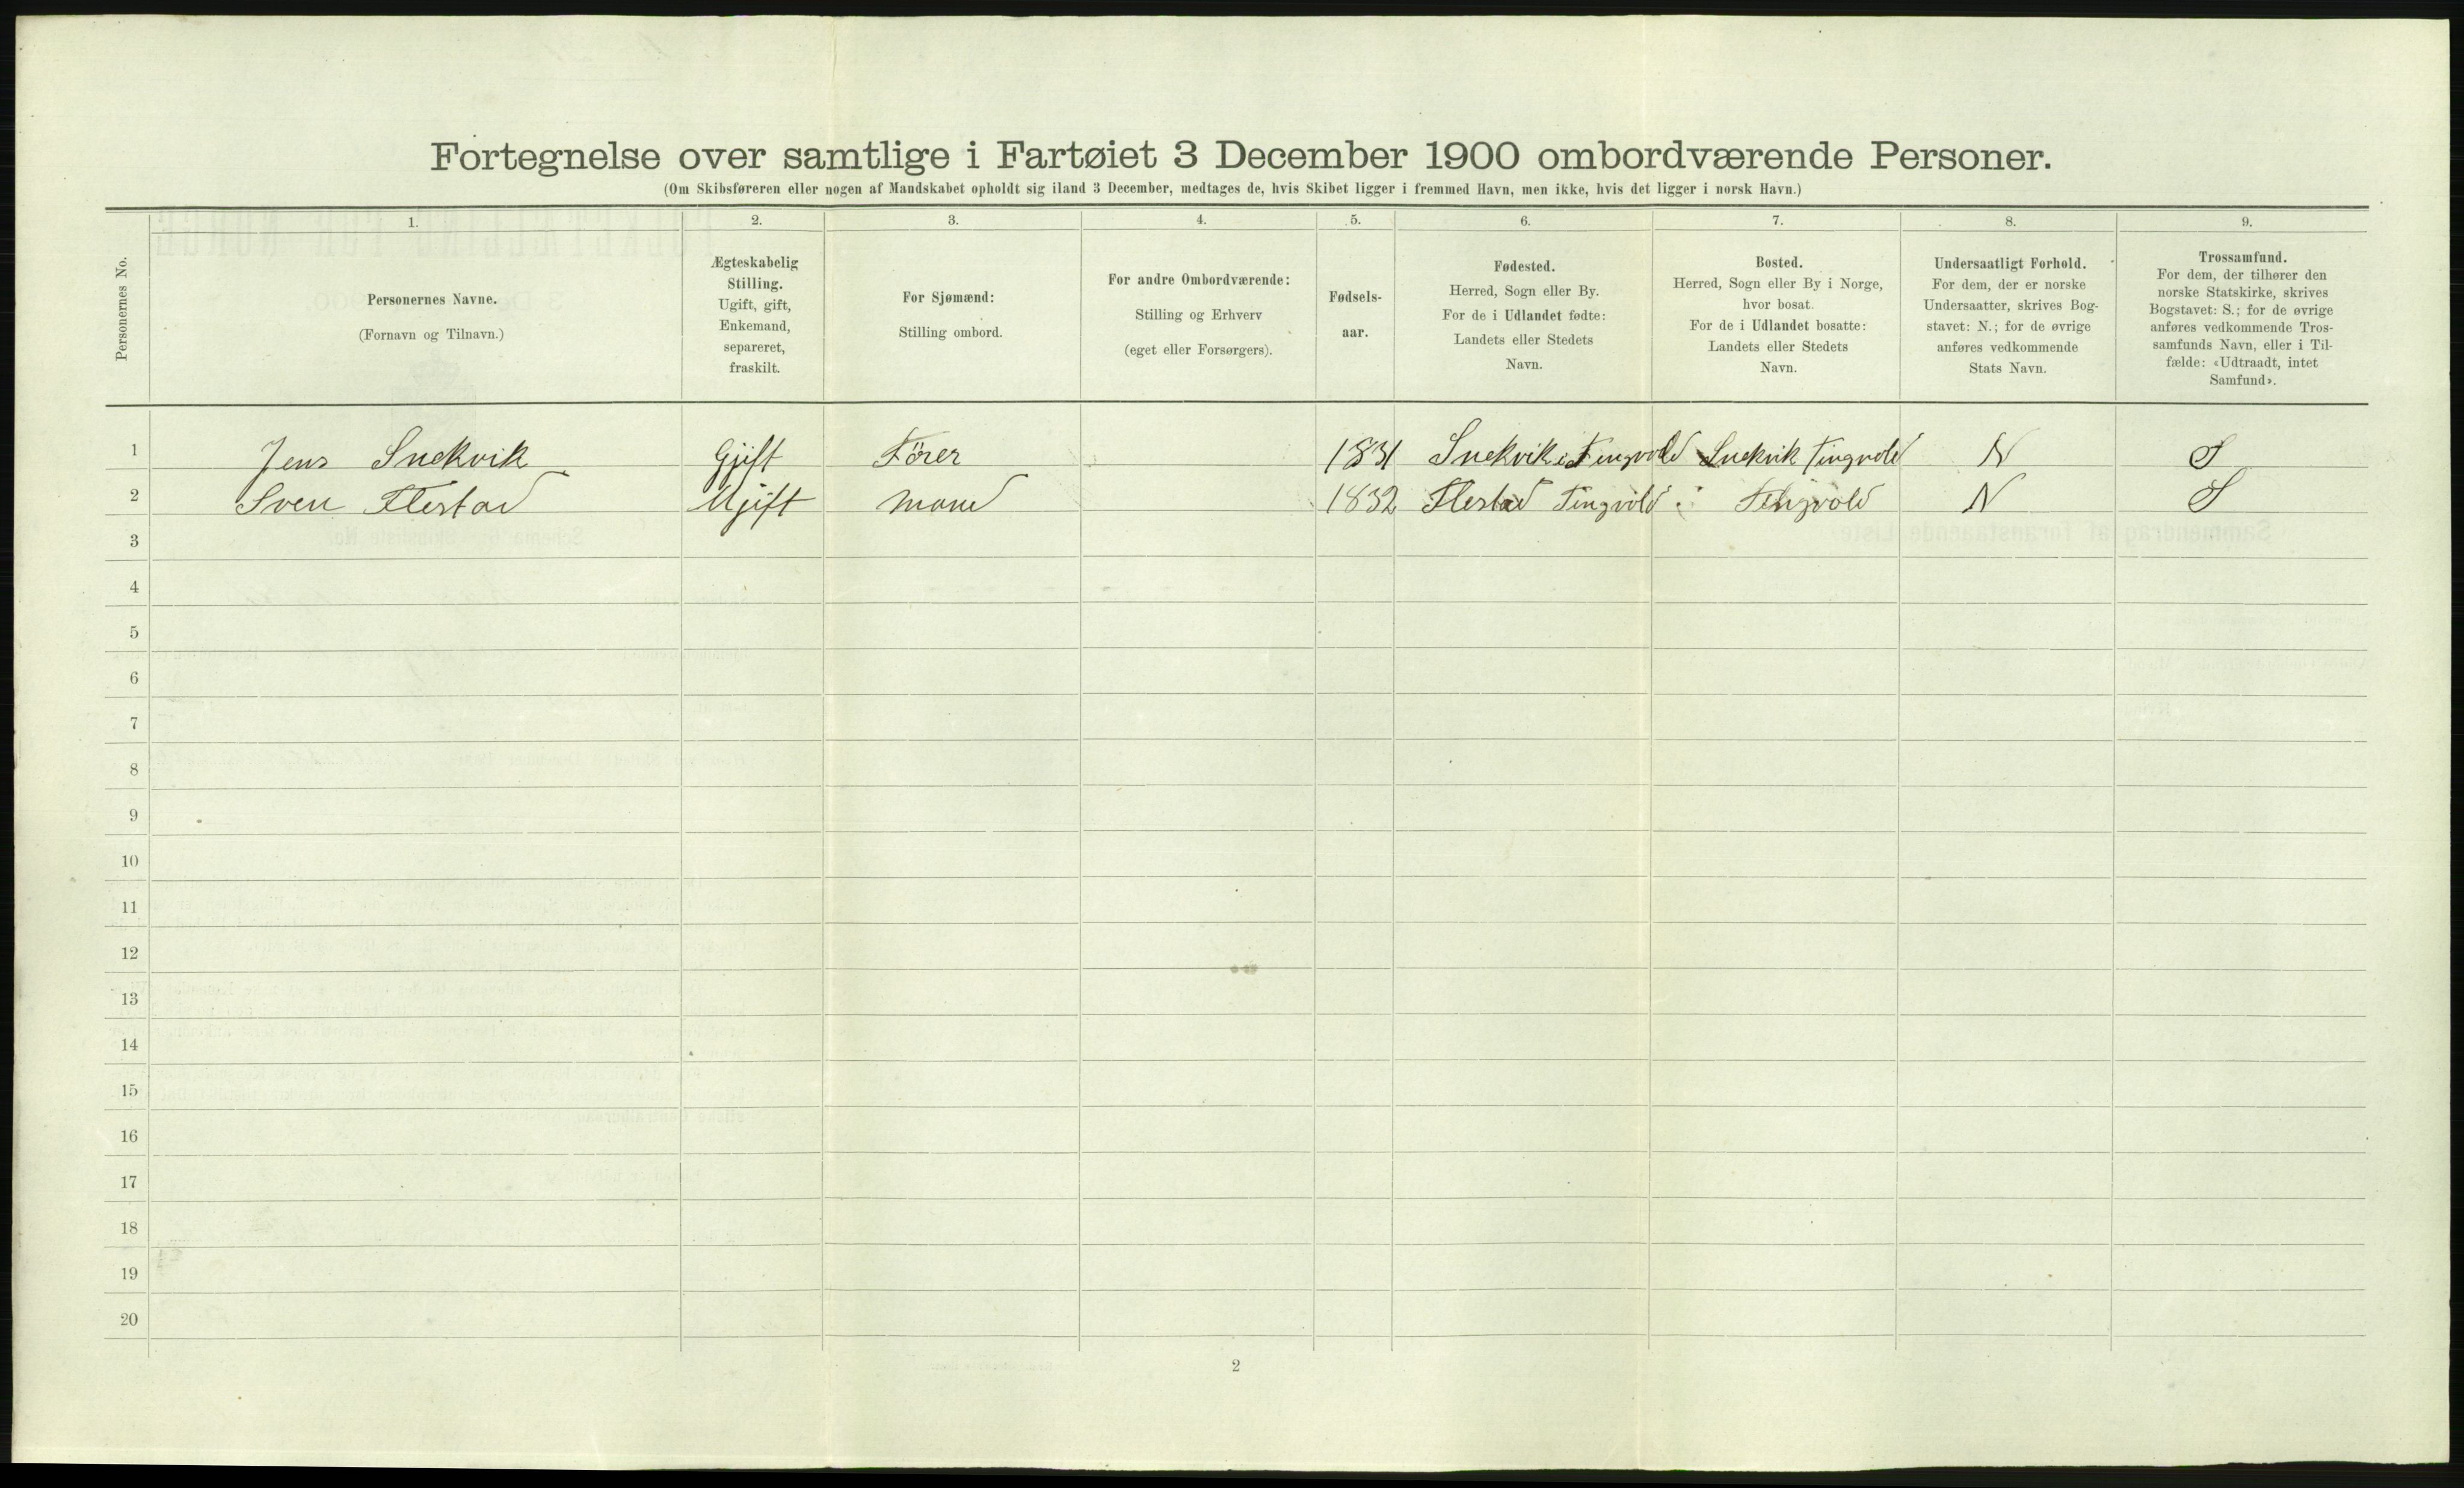 Fortegnelse over samtlige i Fartøiet 3 December 1900 ombordværende Personer.
(Om Skibsføreren eller nogen af Mandskabet opholdt sig iland 3 December, medtages de, hvis Skibet ligger i fremmed Havn, men ikke, hvis det ligger i norsk Havn.)
Personernes No.
1.
Personernes Navne.
(Fornavn og Tilnavn.)
2.
Ægteskabelig
Stilling.
Ugift, gift,
Enkemand,
separeret,
fraskilt.
3.
For Sjømænd:
Stilling ombord.
4.
For andre Ombordværende:
Stilling og Erhverv
(eget eller Forsørgers).
5.
Fødsels-
aar.
6.
Fødested.
Herred, Sogn eller By.
For de i Udlandet fødte:
Landets eller Stedets
Navn.
7.
Bosted.
Herred, Sogn eller By i Norge,
hvor bosat.
For de i Udlandet bosatte:
Landets eller Stedets
Navn.
8.
Undersaatligt Forhold.
For dem, der er norske
Undersaatter, skrives Bog-
stavet: N.; for de øvrige
anføres vedkommende
Stats Navn.
9.
Trossamfund.
For dem, der tilhører den
norske Statskirke, skrives
Bogstavet: S.; for de øvrige
anføres vedkommende Tros-
samfunds Navn, eller i Til-
fælde: «Udtraadt, intet
Samfund».
1 Jens Snekvik Gjift Förer 1831 Snekvik i Tingvold Snekvik Tingvold N S
2 Sven Flestad Ugift Mand 1832 Flestad Tingvold Tingvold N S
3
4
5
6
7
8
9
10
11
12
13
14
15
16
17
18
19
20
2